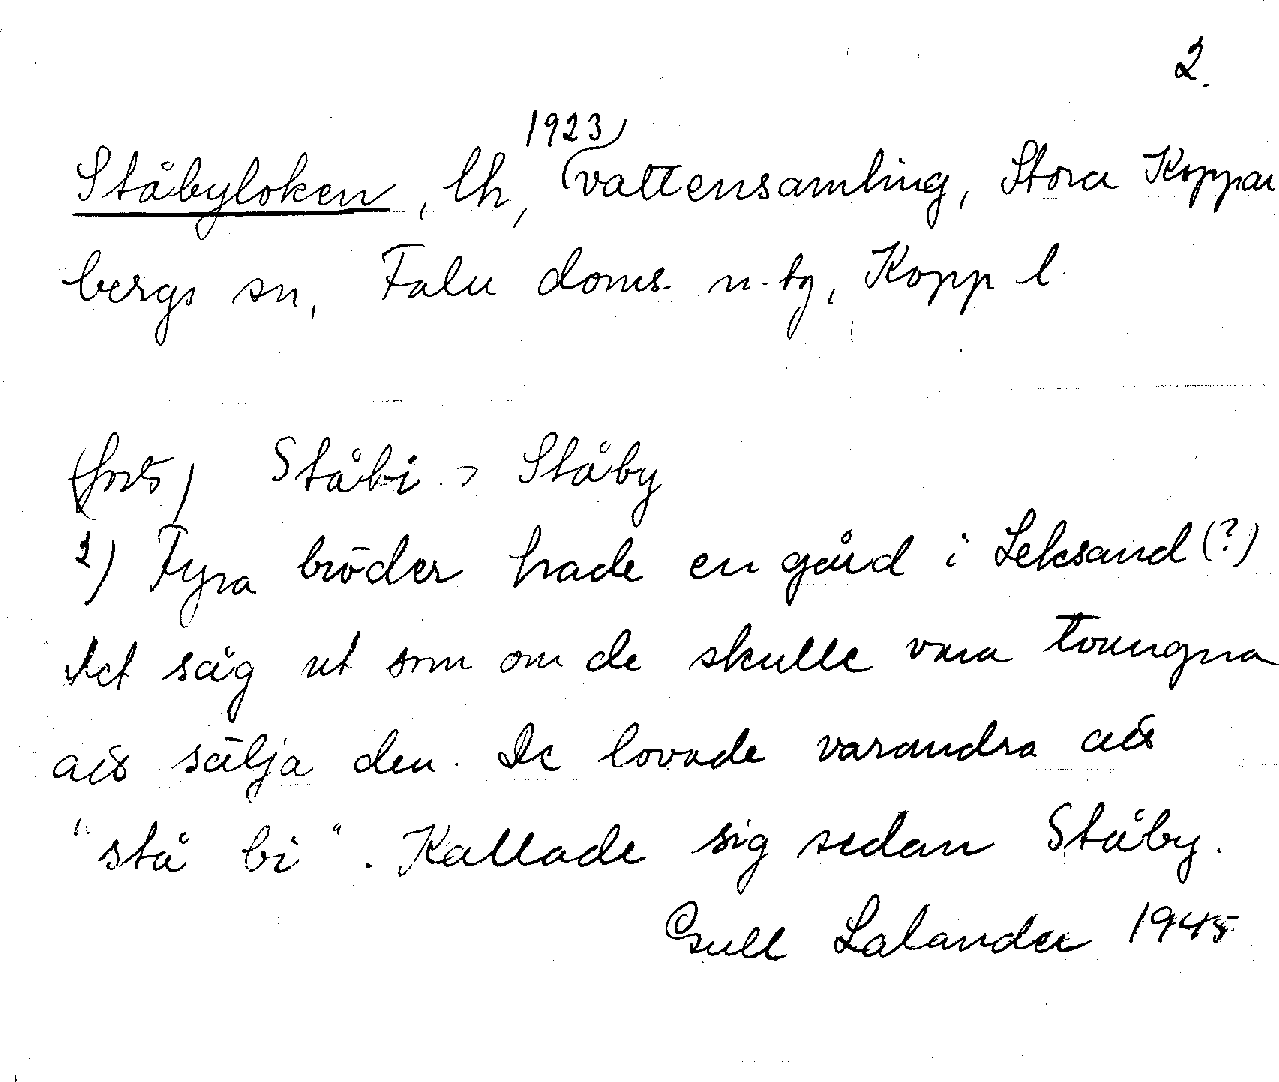 2.
1923)
Ståbyloken, lh, (vattensamling, Stora Koppar
bergs sn, Falu doms. n. tg, Kopp l.
(forts) Ståbi > Ståby
2) Fyra bröder hade en gård i Leksand (?)
Det såg ut som om de skulle vara tvungna
att sälja den. De lovade varandra att
"stå bi". Kallade sig sedan Ståby.
Gull Lalander 1945